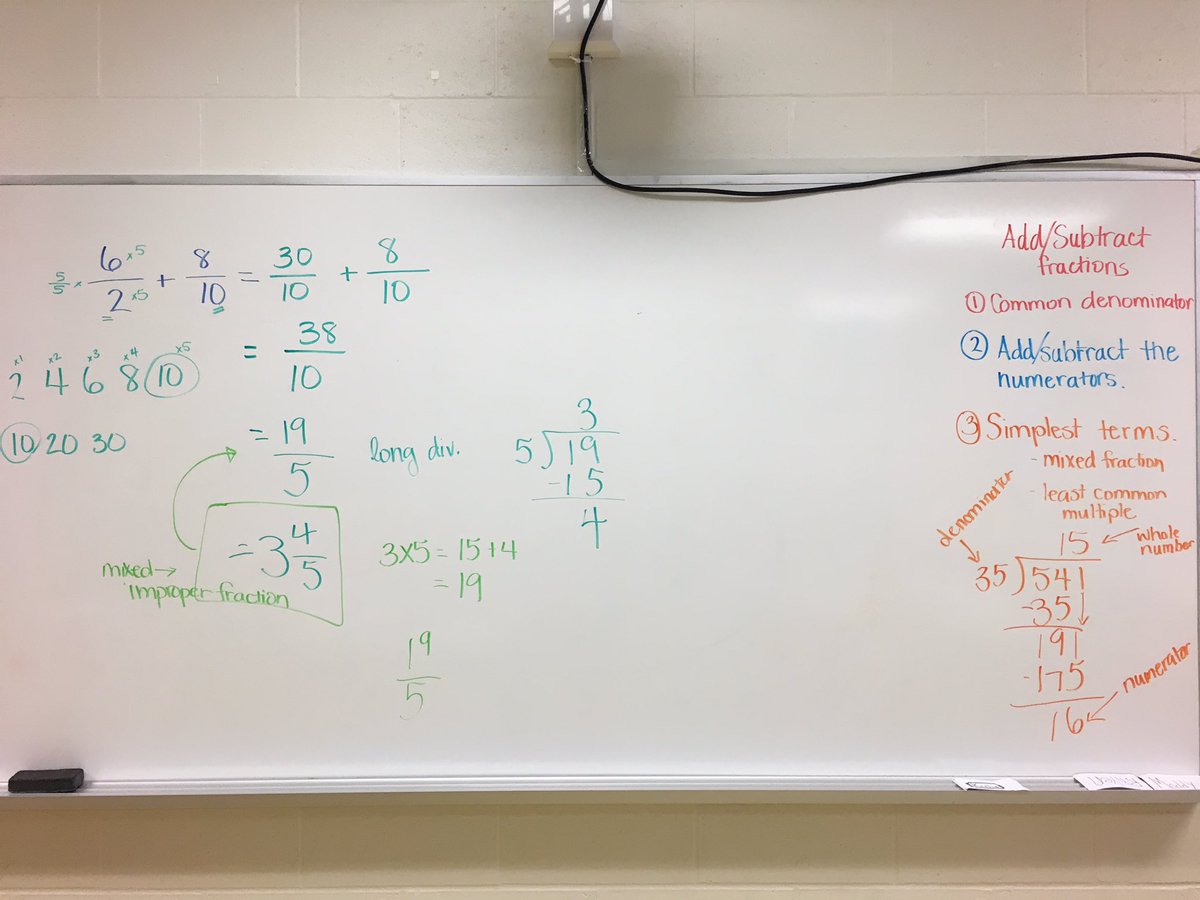 5/5 × 6×5/2×5 + 8/10 = 30/10 + 8/10
= 38/10
×1 ×2 ×3 ×4 ×5
2 4 6 8 10
10 20 30
= 19/5
long div.
3
5)19
-15
4
= 3 4/5
mixed→
improper fraction
3×5 = 15+4
= 19
19/5
Add/Subtract
fractions
① Common denominator
② Add/subtract the
numerators.
③ Simplest terms.
- mixed fraction
- least common
multiple
denominator
15
whole
number
35)541
-35
191
-175
16
numerator